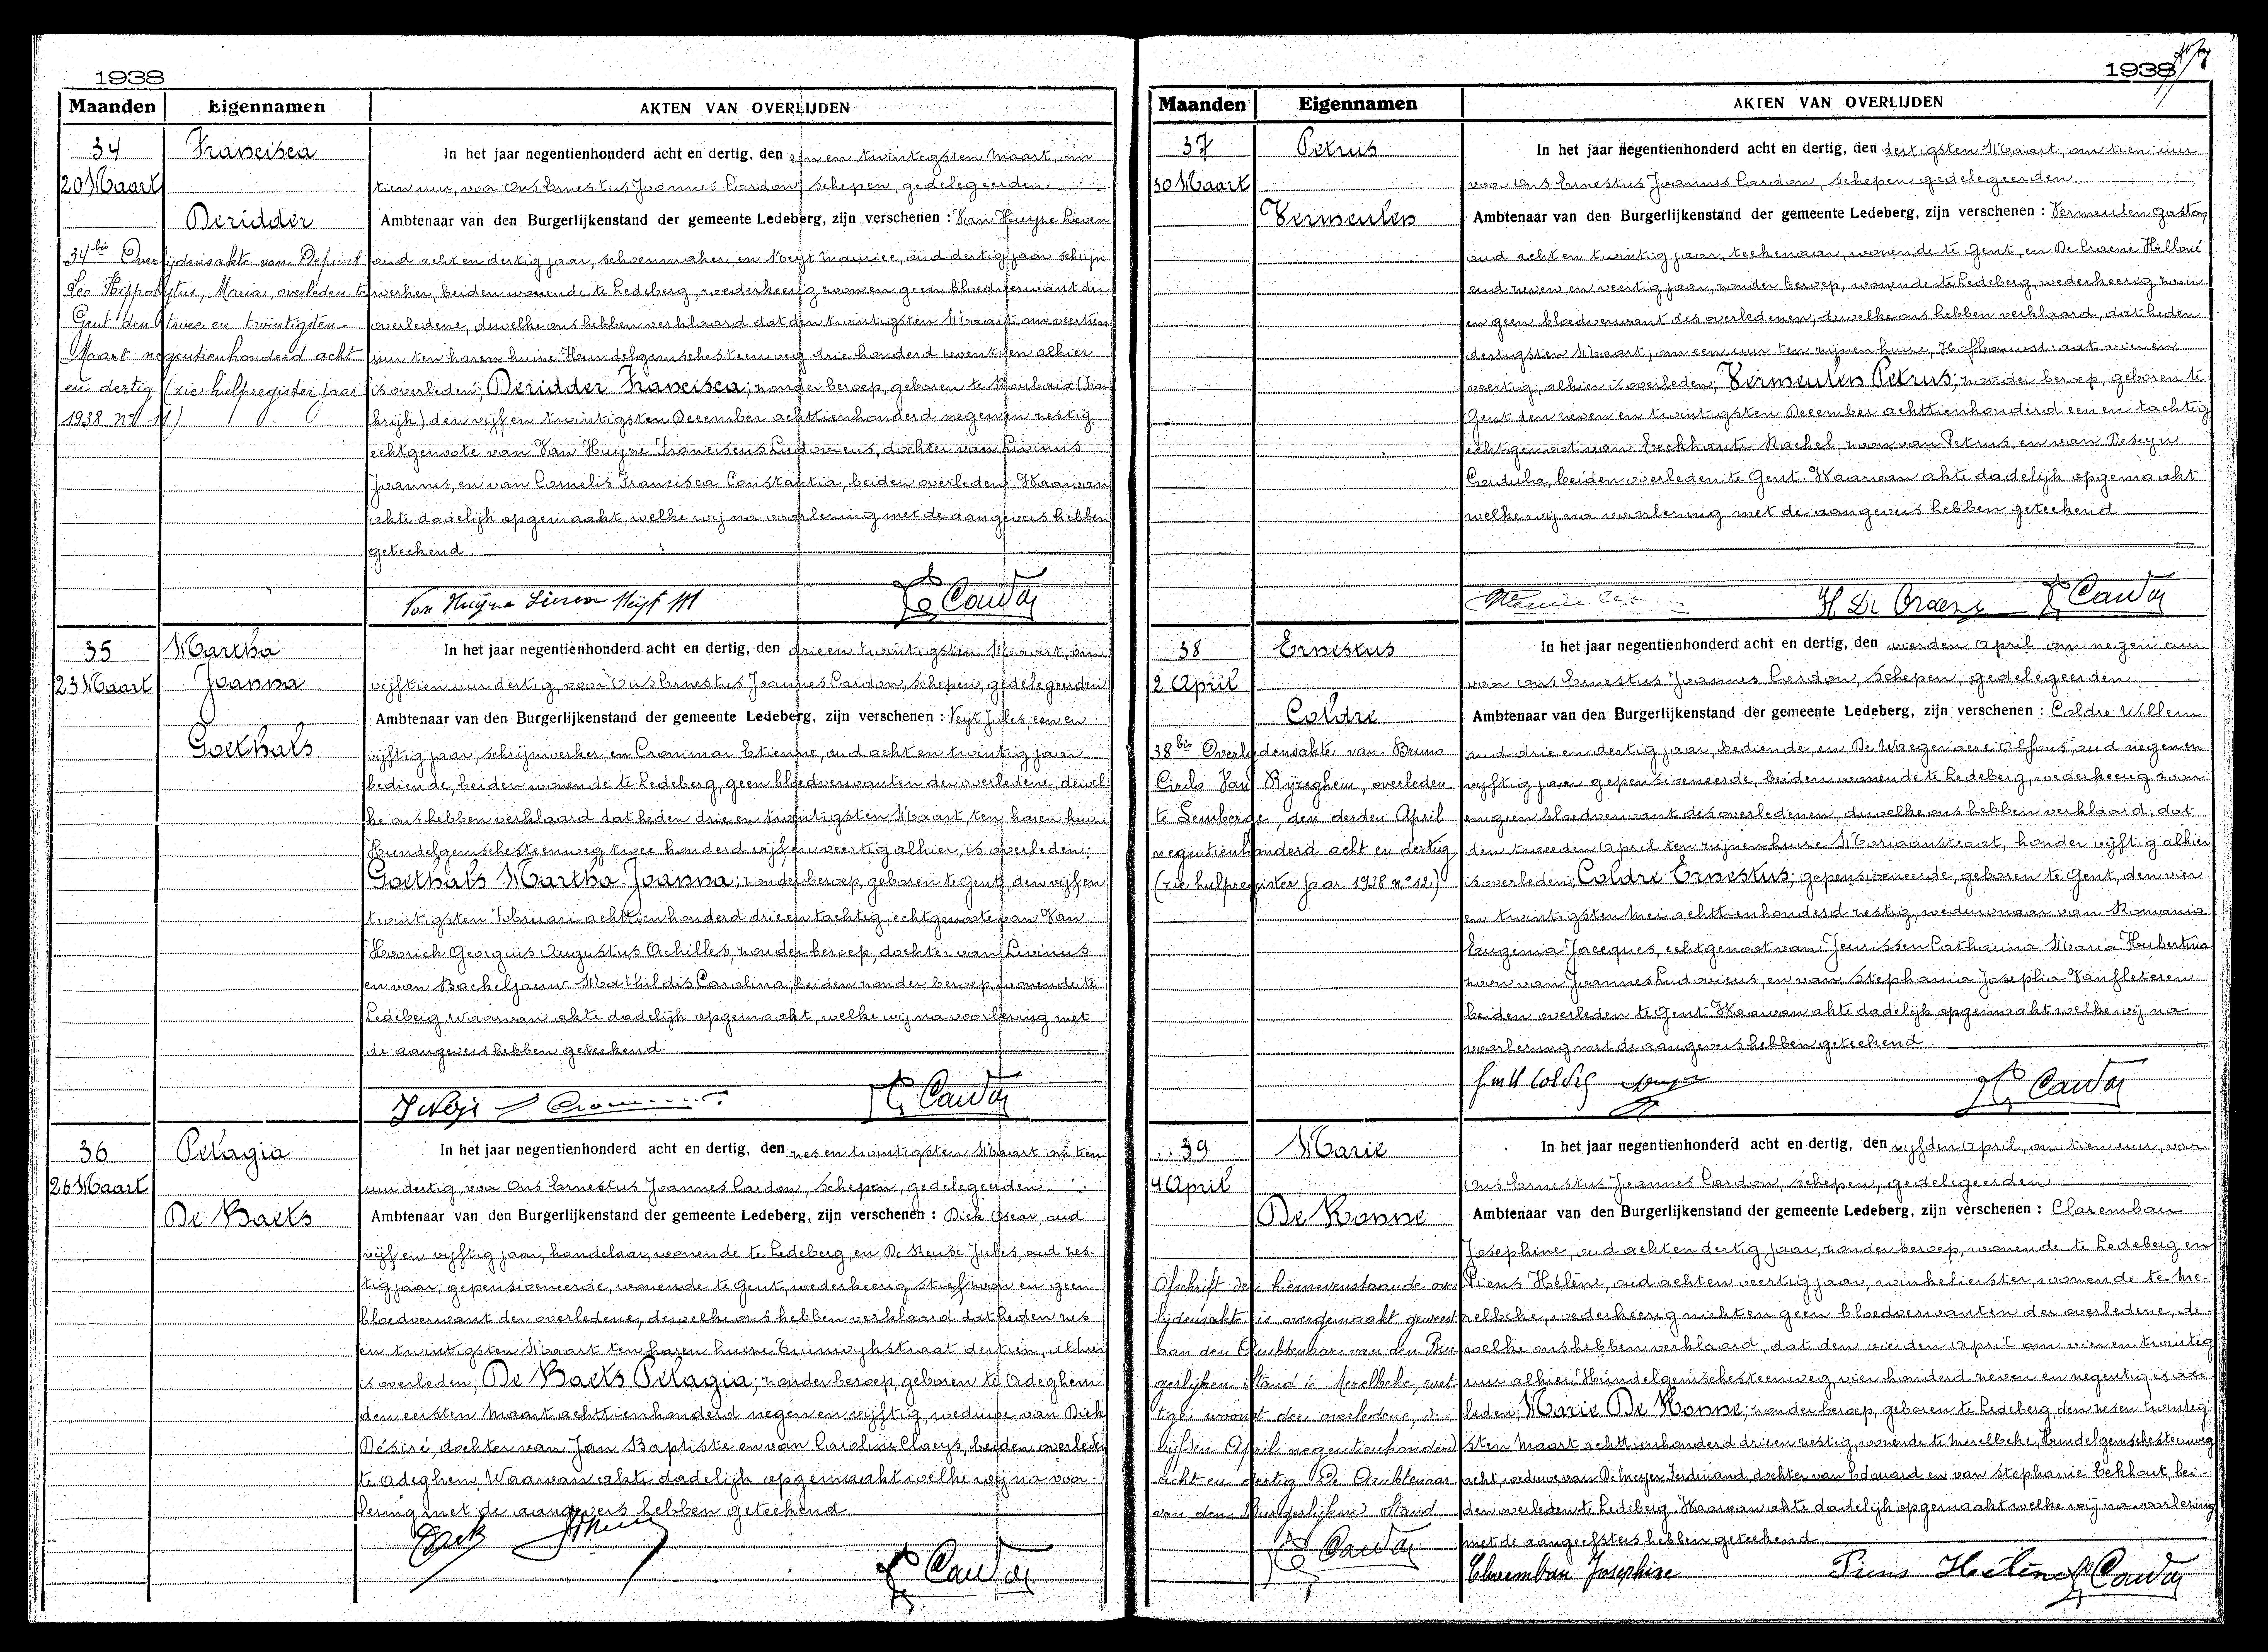 1938
Maanden Eigennamen AKTEN VAN OVERLIJDEN
34 Francisca
20 Maart
Deridder
34bis Overlijdensakte van Defunt
Leo Hippolytus, Maria, overleden te
Gent den twee en twintigsten
Maart negentienhonderd acht
en dertig (zie hulpregister jaar
1938 no 11)
In het jaar negentienhonderd acht en dertig, den een en twintigsten Maart, om
tien uur, voor Ons Ernestus Joannes Cardon, schepen, gedelegeerden
Ambtenaar van den Burgerlijkenstand der gemeente Ledeberg, zijn verschenen : Van Huyse Lieven
oud acht en dertig jaar, schoenmaker, en Neyt Maurice, oud dertig jaar schrijn
werker, beiden wonende te Ledeberg, wederkeerig zoon en geen bloedverwant der
overledene, dewelke ons hebben verklaard dat den twintigsten Maart om veertien
uur ten haren huize Hundelgemschesteenweg drie honderd zeventien alhier
is overleden; Deridder Francisca; zonder beroep, geboren te Roubaix (Fran
krijk) den vijf en twintigsten December achttienhonderd negen en zestig
echtgenoote van Van Huyse Franciscus Ludovicus, dochter van Livinus
Joannes, en van Cornelis Francisca Constantia, beiden overleden. Waarvan
akte dadelijk opgemaakt, welke wij na voorlezing met de aangevers hebben
geteekend.
Van Huyse Lieven Neyt M Cardon
35 Martha
23 Maart Joanna
Goethals
In het jaar negentienhonderd acht en dertig, den drie en twintigsten Maart, om
vijftien uur dertig, voor Ons Ernestus Joannes Cardon, schepen, gedelegeerden
Ambtenaar van den Burgerlijkenstand der gemeente Ledeberg, zijn verschenen : Neyt Jules, een en
vijftig jaar, schrijnwerker, en Crommar Etienne, oud acht en twintig jaar
bediende, beiden wonende te Ledeberg, geen bloedverwanten der overledene, dewel
ke ons hebben verklaard dat heden drie en twintigsten Maart, ten haren huize
Hundelgemschesteenweg twee honderd vijf en veertig alhier, is overleden;
Goethals Martha Joanna; zonder beroep, geboren te Gent, den vijf en
twintigsten Februari achttienhonderd drie en tachtig, echtgenoote van Van
Hoorick Georgius Augustus Achilles, zonder beroep, dochter van Livinus
en van Bacheljauw Mathildis Carolina, beiden zonder beroep, wonende te
Ledeberg Waarvan akte dadelijk opgemaakt, welke wij na voorlezing met
de aangevers hebben geteekend.
Cardon
36 Pelagia
26 Maart
De Baets
In het jaar negentienhonderd acht en dertig, den zes en twintigsten Maart om tien
uur dertig, voor Ons Ernestus Joannes Cardon, schepen, gedelegeerden
Ambtenaar van den Burgerlijkenstand der gemeente Ledeberg, zijn verschenen : Dick Oscar, oud
vijf en vijftig jaar, handelaar, wonende te Ledeberg, en De Reuse Jules, oud zes-
tig jaar, gepensioneerde, wonende te Gent, wederkeerig stiefzoon en geen
bloedverwant der overledene, dewelke ons hebben verklaard dat heden zes
en twintigsten Maart ten haren huize Tuinwijkstraat dertien, alhier
is overleden; De Baets Pelagia; zonder beroep, geboren te Adeghem
den eersten Maart achttienhonderd negen en vijftig, weduwe van Dick
Désiré, dochter van Jan Baptiste en van Caroline Claeys, beiden overleden
te Adeghem, Waarvan akte dadelijk opgemaakt welke wij na voor-
lezing met de aangevers hebben geteekend
Cardon
1938
Maanden Eigennamen AKTEN VAN OVERLIJDEN
37 Petrus
30 Maart
Vermeulen
In het jaar negentienhonderd acht en dertig, den dertigsten Maart, om tien uur
voor Ons Ernestus Joannes Cardon, schepen gedelegeerden
Ambtenaar van den Burgerlijkenstand der gemeente Ledeberg, zijn verschenen : Vermeulen Gaston
oud acht en twintig jaar, teekenaar, wonende te Gent, en De Craene Hilloné
oud zeven en veertig jaar, zonder beroep, wonende te Ledeberg, wederkeerig zoon
en geen bloedverwant des overledenen, dewelke ons hebben verklaard, dat heden
dertigsten Maart, om een uur ten zijnen huize, Hofbouwstraat vier en
veertig, alhier is overleden; Vermeulen Petrus; zonder beroep, geboren te
Gent den zeven en twintigsten December achttienhonderd een en tachtig
echtgenoot van Eeckhaute Rachel, zoon van Petrus, en van Deseyn
Cordula, beiden overleden te Gent. Waarvan akte dadelijk opgemaakt
welke wij na voorlezing met de aangevers hebben geteekend
H De Craene Cardon
38 Ernestus
2 April
Coldre
38bis Overlijdensakte van Bruno
Cirilo Van Rijzeghem, overleden
te Lemberge, den derden April
negentienhonderd acht en dertig
(zie hulpregister jaar 1938 no 12)
In het jaar negentienhonderd acht en dertig, den vierden April om negen uur
voor Ons Ernestus Joannes Cardon, schepen, gedelegeerden
Ambtenaar van den Burgerlijkenstand der gemeente Ledeberg, zijn verschenen : Coldre Willem
oud drie en dertig jaar, bediende, en De Waegenaere Alfons, oud negen en
vijftig jaar gepensioneerde, beiden wonende te Ledeberg, wederkeerig zoon
en geen bloedverwant des overledenen, dewelke ons hebben verklaard, dat
den tweeden April ten zijnen huize Moriaanstraat, honder vijftig alhier
is overleden; Coldre Ernestus; gepensioneerde, geboren te Gent, den vier
en twintigsten Mei achttienhonderd zestig, weduwnaar van Romania
Eugenia Jacques, echtgenoot van Jeurissen Catharina Maria Hubertina
zoon van Joannes Ludovicus, en van Stephania Josepha Vanfleteren
beiden overleden te Gent Waarvan akte dadelijk opgemaakt welke wij na
voorlezing met de aangevers hebben geteekend.
Cardon
39 Marie
4 April
De Konne
Afschrift der hiernevenstaande over
lijdensakte is overgemaakt geweest
aan den Ambtenaar van den Bur
gerlijken Stand te Merelbeke, wet
tige woonst der overledene, 
vijfden April negentienhonderd
acht en dertig De Ambtenaar
van den Burgerlijken Stand
Cardon
In het jaar negentienhonderd acht en dertig, den vijfden April, om tien uur, voor
Ons Ernestus Joannes Cardon, schepen, gedelegeerden
Ambtenaar van den Burgerlijkenstand der gemeente Ledeberg, zijn verschenen : Clarembau
Josephine, oud acht en dertig jaar, zonder beroep, wonende te Ledeberg en
Piens Hélène, oud acht en veertig jaar, winkelierster, wonende te Me-
relbeke, wederkeerig nicht en geen bloedverwanten der overledene, de-
welke ons hebben verklaard, dat den vierden April om vier en twintig
uur alhier, Hundelgemschesteenweg, vier honderd zeven en negentig is over
leden; Marie De Konne; zonder beroep, geboren te Ledeberg den zesen twintig
sten Maart achttienhonderd drie en zestig, wonende te Merelbeke, Hundelgemschesteenweg
acht, weduwe van De Meyer Ferdinand, dochter van Edouard en van Stephanie Eekhout, bei-
den overleden te Ledeberg. Waarvan akte dadelijk opgemaakt welke wij na voorlezing
met de aangeefsters hebben geteekend
Clarembau Josephine Piens Helène Cardon